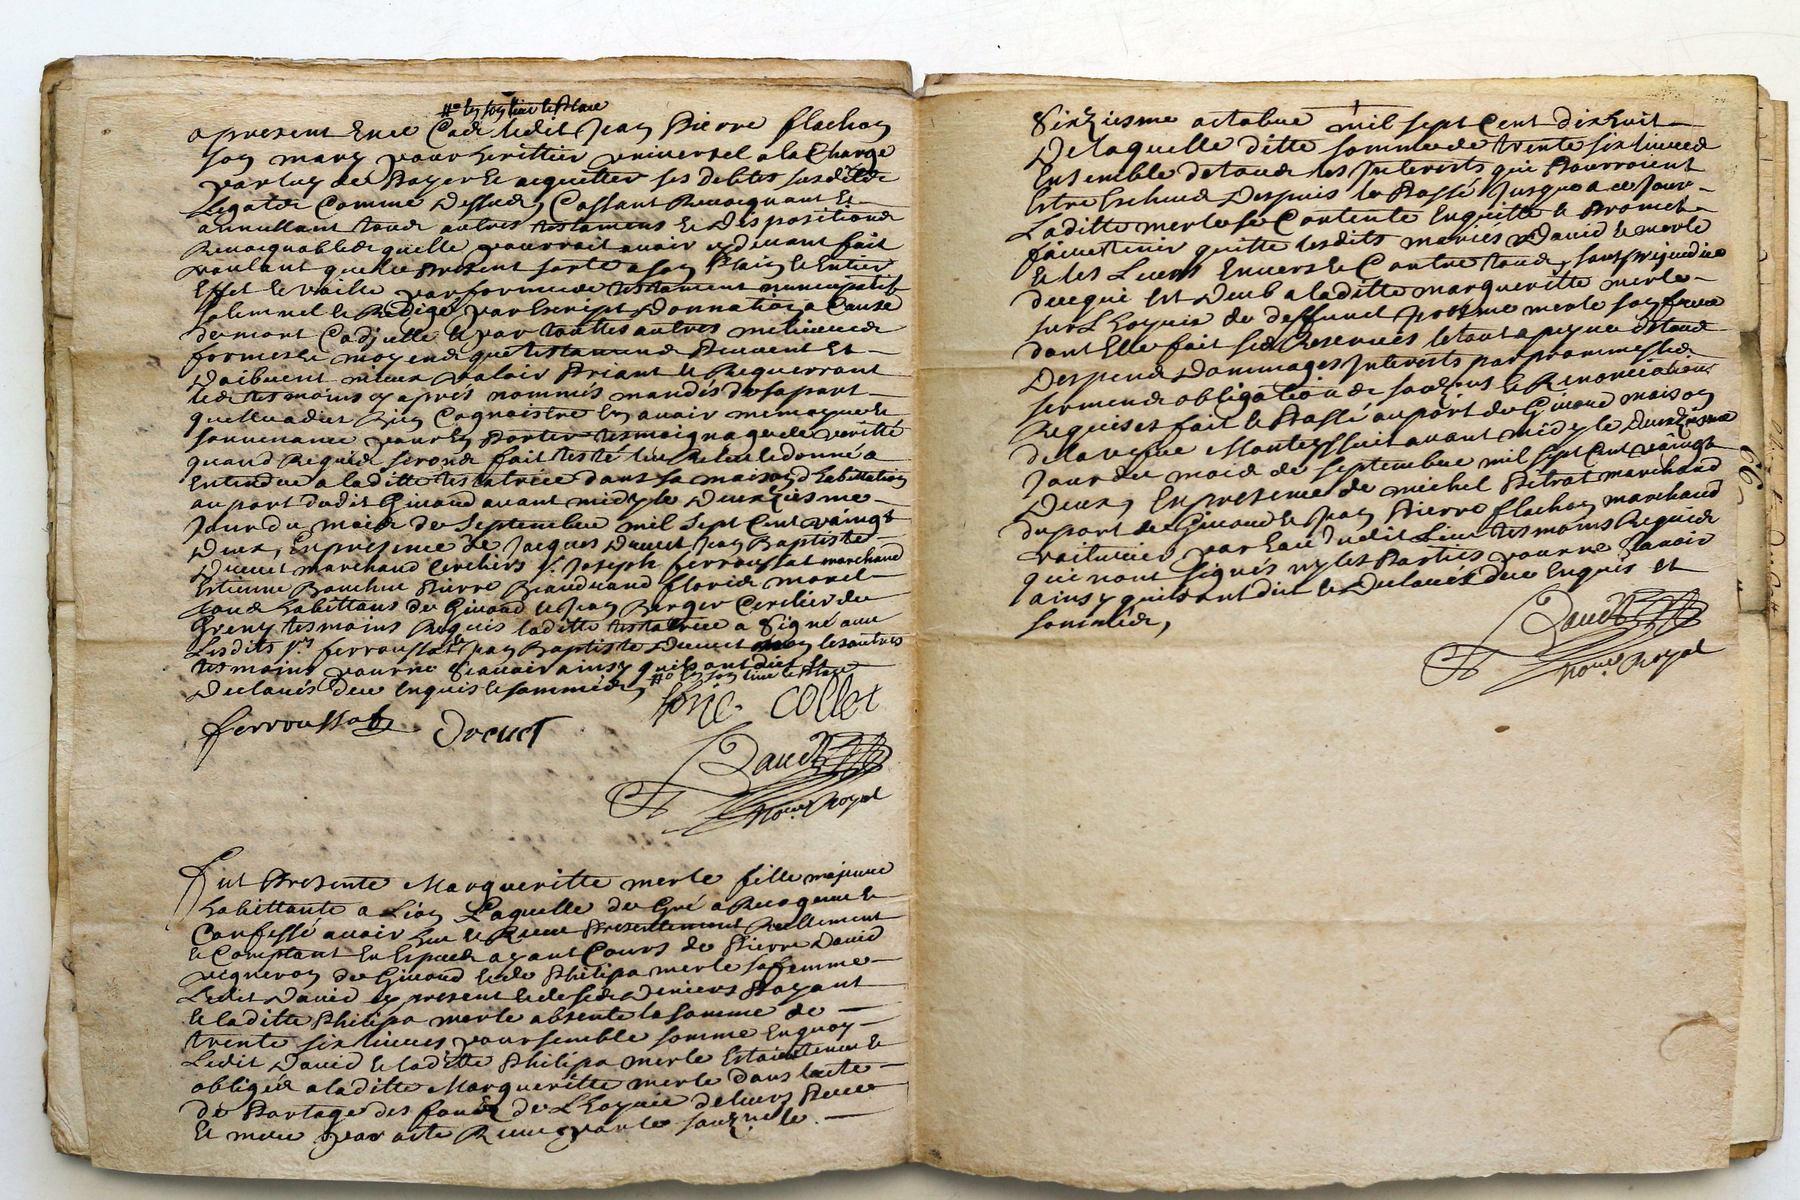 apresent Enee Cadi ledit Jean Pierre flachon
son mary pour heritier universel a la Charge
par luy de Payer Et acquitter ses debtes susdits
Legats Comme Dessus, Cassant Revocquant Et
annullant tous autres testamens Et Dispositions
Revocquables quelle pourroit avoir cy devant fait
voulant que le present sorte a son Plain Et Entier
Effet Et vaille par forme de testament nuncupatif
solemnel Et Redigé par Escript Donnation a Cause
de mort Codicille Et par touttes autres meilleures
formes Et moyens que testamens Peuvent Et
Doibvent mieux valoir Priant Et Requerrant
les tesmoins cy aprés nommés mandés de sa part
quelle a dit bien Cognoistre En avoir memoyre Et
souvenance pour En Porter tesmoignage de verité
quand Requis seront fait testé leu Releu Et donné a
Entendre a laditte testatrice dans sa maison d'habittation
au port dudit Givord avant midy le Deuxiesme
Jour du mois de Septembre mil sept Cent vaingt
Deux, En presence de Jacques Drevet Jean Baptiste
Drevet marchand Cercliers Sr. Joseph ferroussat marchand
Estienne Bonchu Pierre Brand floris morel
tous habittans de Givord Et Jean Berger Cerclier de
Greny tesmoins Requis laditte testatrice a Signé avec
Lesdits Sr. ferroussat Et Jean Baptiste Drevet non les autres
tesmoins pour ne Scavoir ainsy quils ont dict Et
Declarés de ce Enquis Et sommés,
ferroussat Drevet collet
David
No.re Royal
Fut Presente Margueritte merle fille majeure
habittante a Lion Laquelle de Gré a Recogneu Et
Confessé avoir heu Et Receu Presentement Reellement
Et Comptant En Espece ayant Cours de Pierre David
vigneron de Givord Et de Philipa merle sa femme
Ledit David cy present Et de ses Deniers Payant
Et laditte Philipa merle absente la somme de
trente six livres pour semble somme Enquoy
Ledit David Et laditte Philipa merle Estoient tenus Et
obligés a laditte Margueritte merle dans lacte
de Partage des fonds de L'hoyrie de leurs Pere
Et mere par acte Receu par le soubz.né le
Sixziesme octobre mil sept Cent dixhuit
De laquelle ditte somme de trente six livres
Ensemble de tous les Interests qui Pourroient
Estre Escheus Despuis le Passé Jusques a ce Jour
Laditte merle se Contente En quitte Et Promet
faire tenir quitte lesdits mariés David Et merle
Et les Leurs Envers Et Contre tous, sans prejudice
de ce qui Est Deub a laditte margueritte merle
sur L'hoyrie de deffunct merle son frere
dont Elle fait ses Reserves le tout a peyne de tous
Despens Dommages Interests par promesses
serment obligation de ses biens Et Renonciations
Requises fait Et Passé au port de Givord maison
de la veuve Monteyssuit avant midy le Deuxiesme
Jour du mois de septembre mil sept Cent vaingt
Deux, En presence de michel Pitrat marchand
du port de Givord Et Jean Pierre flachon marchand
voiturier par Eau dudit Lieu tesmoins Requis
qui nont signés ny les Parties pour ne Scavoir
ainsy quils ont dict Et Declarés de ce Enquis Et
sommés,
David
No.re Royal
66